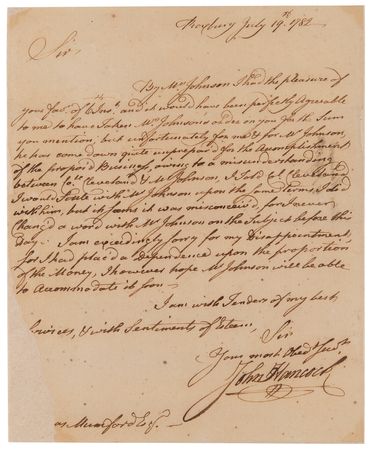 Roxbury July 19th 1782
Sir
By Mr Johnson I had the pleasure of
your favr of Inst. and it would have been perfectly Agreable
to me to have taken Mr Johnson's order on you for the Sum
you mention, but unfortunately for me & for Mr Johnson,
he has come down quite unprepar'd for the Acomplishment
of the propos'd Business, owing to a misunderstanding
between Co. Cleveland & Mr Johnson, I told Col. Cleveland
I would Settle with Mr Johnson upon the Same terms I did
with him, but it seems it was misconceiv'd, for I never
Chang'd a word with Mr Johnson on the Subject before this
Day. I am exceedingly sorry for my Disappointment,
for I had plac'd a Dependence upon the proportion
of the Money, I however hope Mr Johnson will be able
to Accommodate it soon.
I am with Tenders of my best
Services, & with Sentiments of Esteem,
Sir
Your most Obedt Servt
John Hancock
as Mumford Esq.